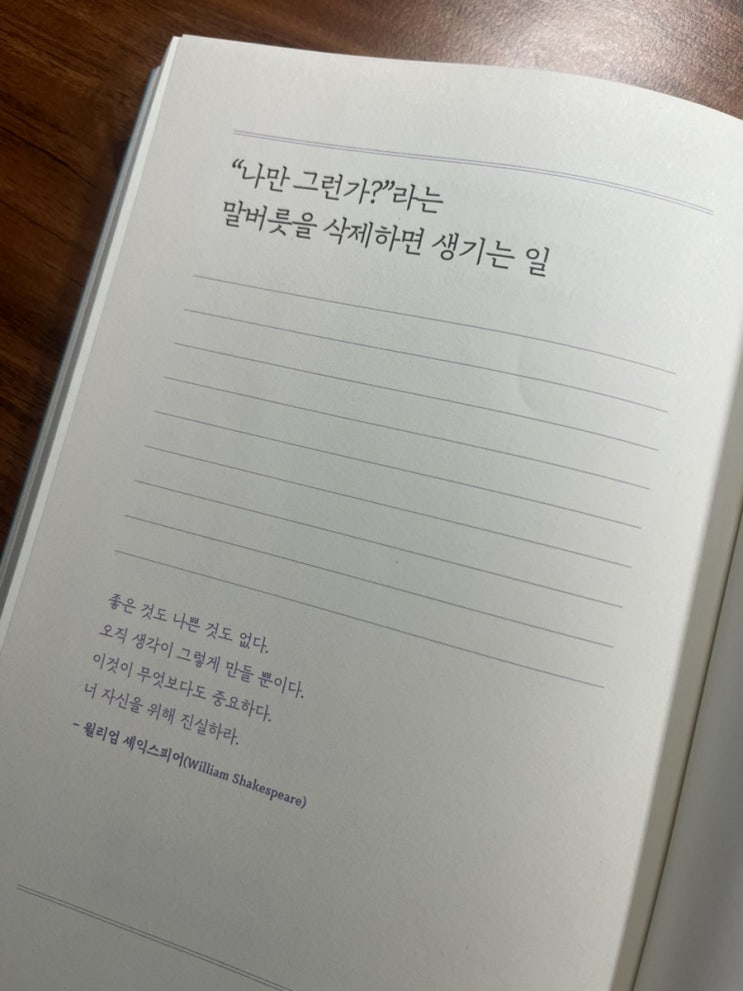 “나만 그런가?”라는
말버릇을 삭제하면 생기는 일
좋은 것도 나쁜 것도 없다.
오직 생각이 그렇게 만들 뿐이다.
이것이 무엇보다도 중요하다.
너 자신을 위해 진실하라.
- 윌리엄 셰익스피어(William Shakespeare)